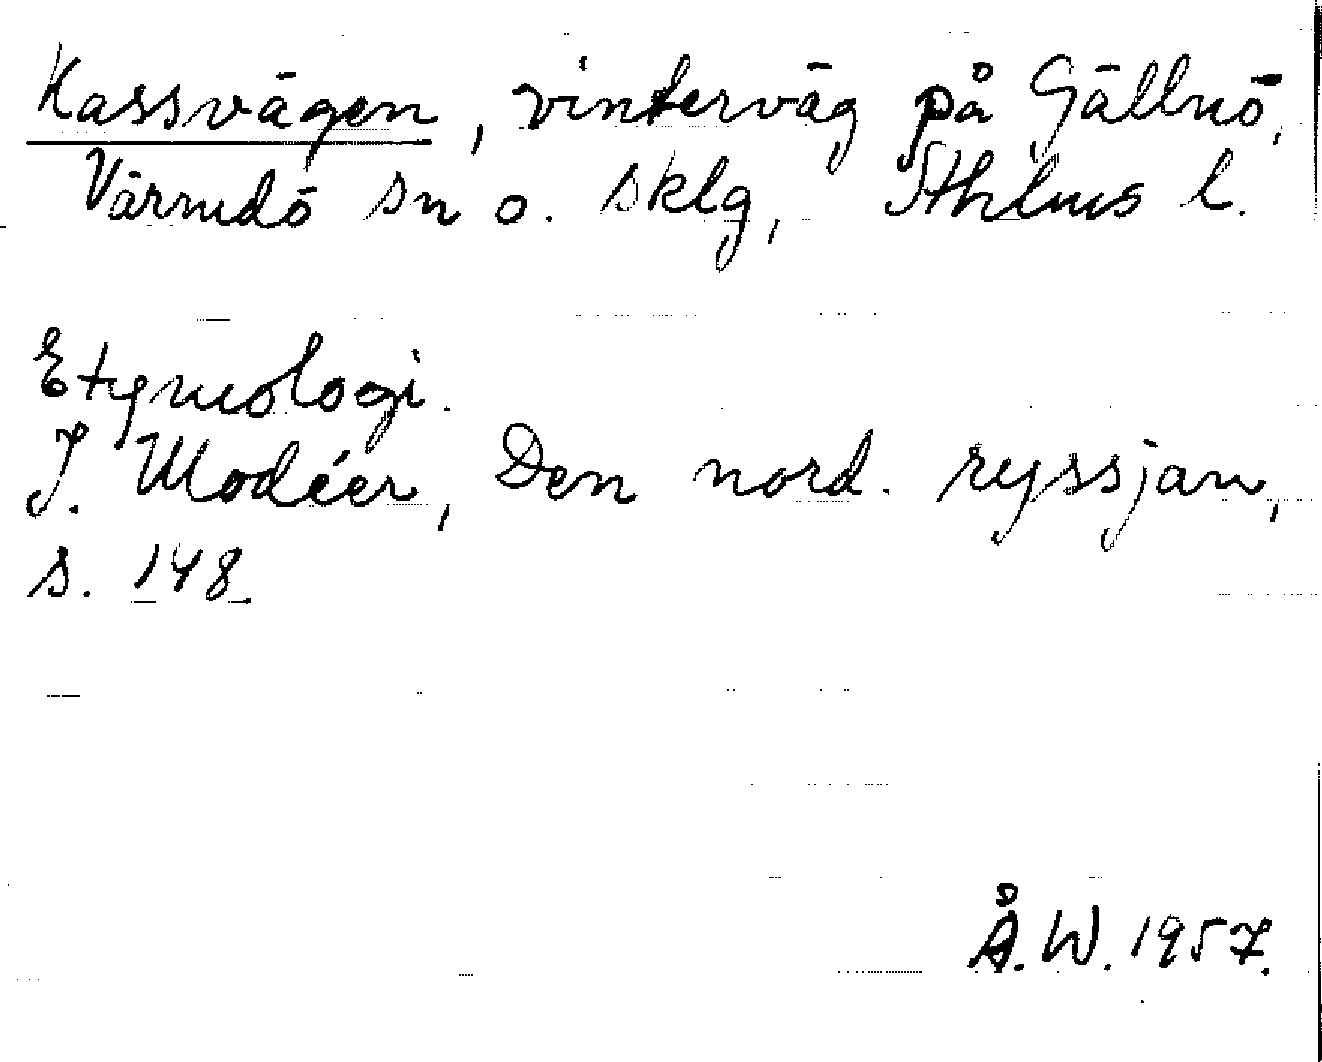 Kassvägen, vinterväg på Gällnö,
Värmdö sn o. sklg, Sthlms l.
Etymologi.
I. Modéer, Den nord. ryssjan,
s. 148.
Å.W. 1957.